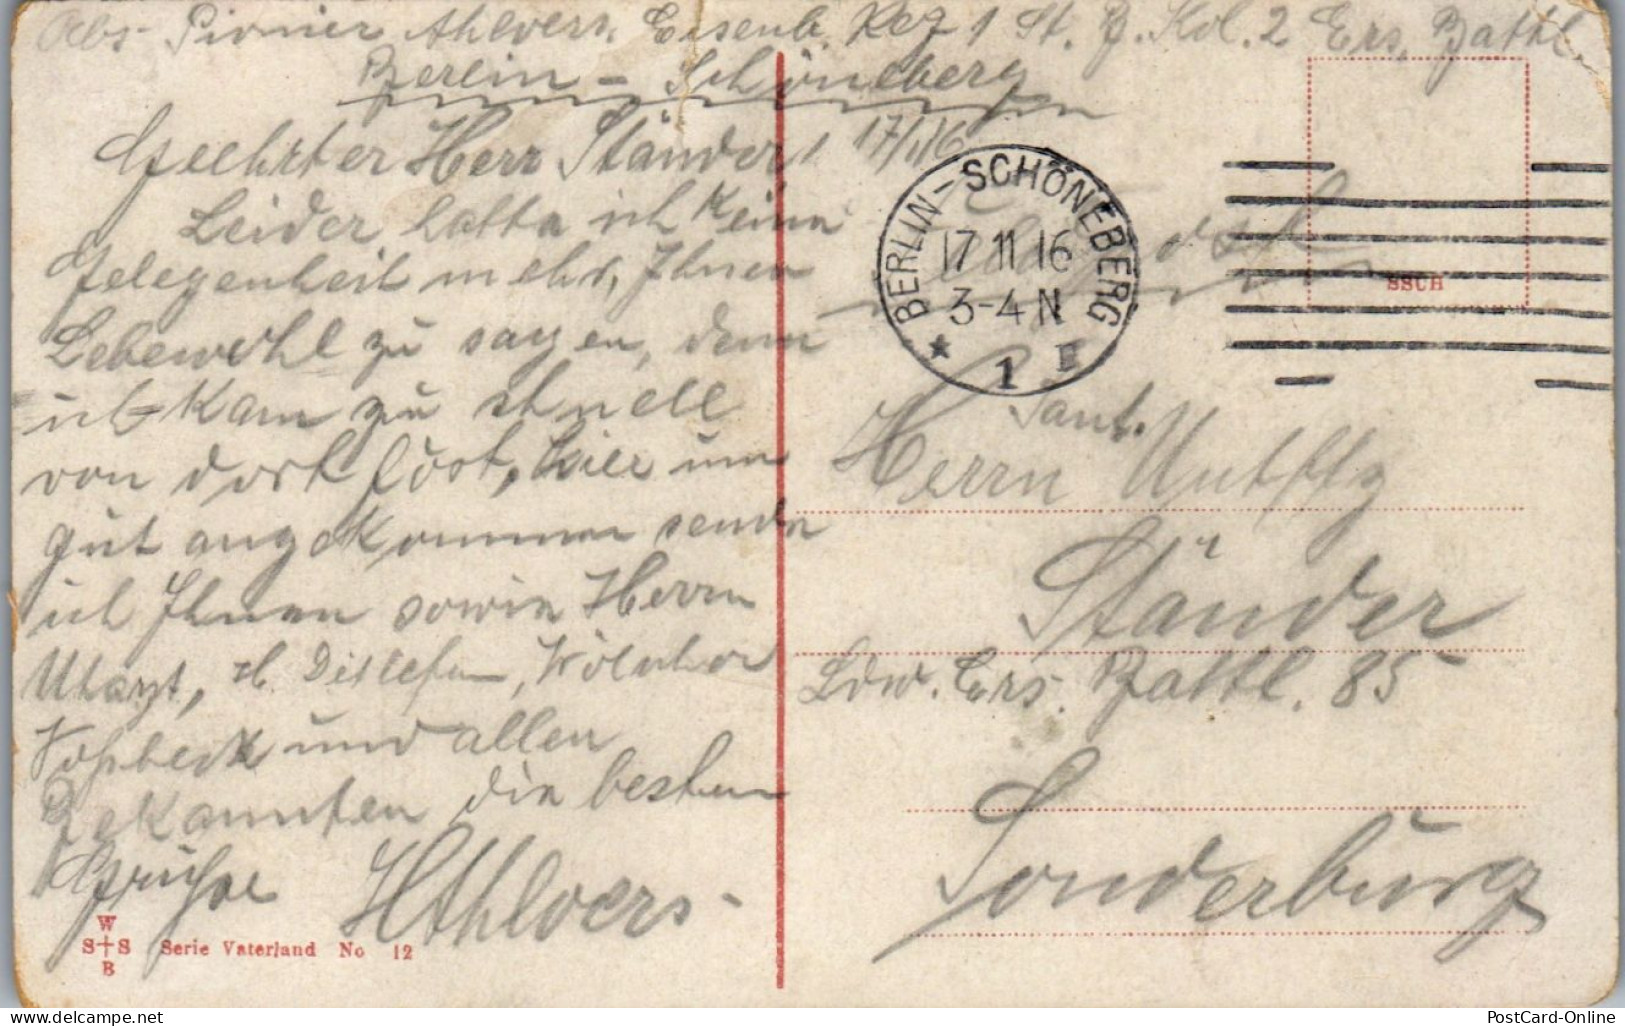 Abs. Pionier Ahlvers, Eisenb. Reg 1 St. B. Kol. 2 Ers. Battl.
Berlin - Schöneberg
17/11/16
Geehrter Herr Ständer!
Leider hatte ich keine
Gelegenheit mehr, Ihnen
Lebewohl zu sagen, denn
ich kam zu schnell
von dort fort, hier nun
gut angekommen sende
ich Ihnen sowie Herrn
Utarzt, H. Detlefsen,
Voßbeck und allen
Bekannten die besten
Grüße HAhlvers
W
S S
B
Serie Vaterland No 12
BERLIN-SCHÖNEBERG
17 11 16
3-4 N
* 1
SSCH
Feldpost
Sant.
Herrn Untffz
Ständer
Ldw. Ers. Battl. 85
Sonderburg
PostCard-Online.com
PostCard-Online